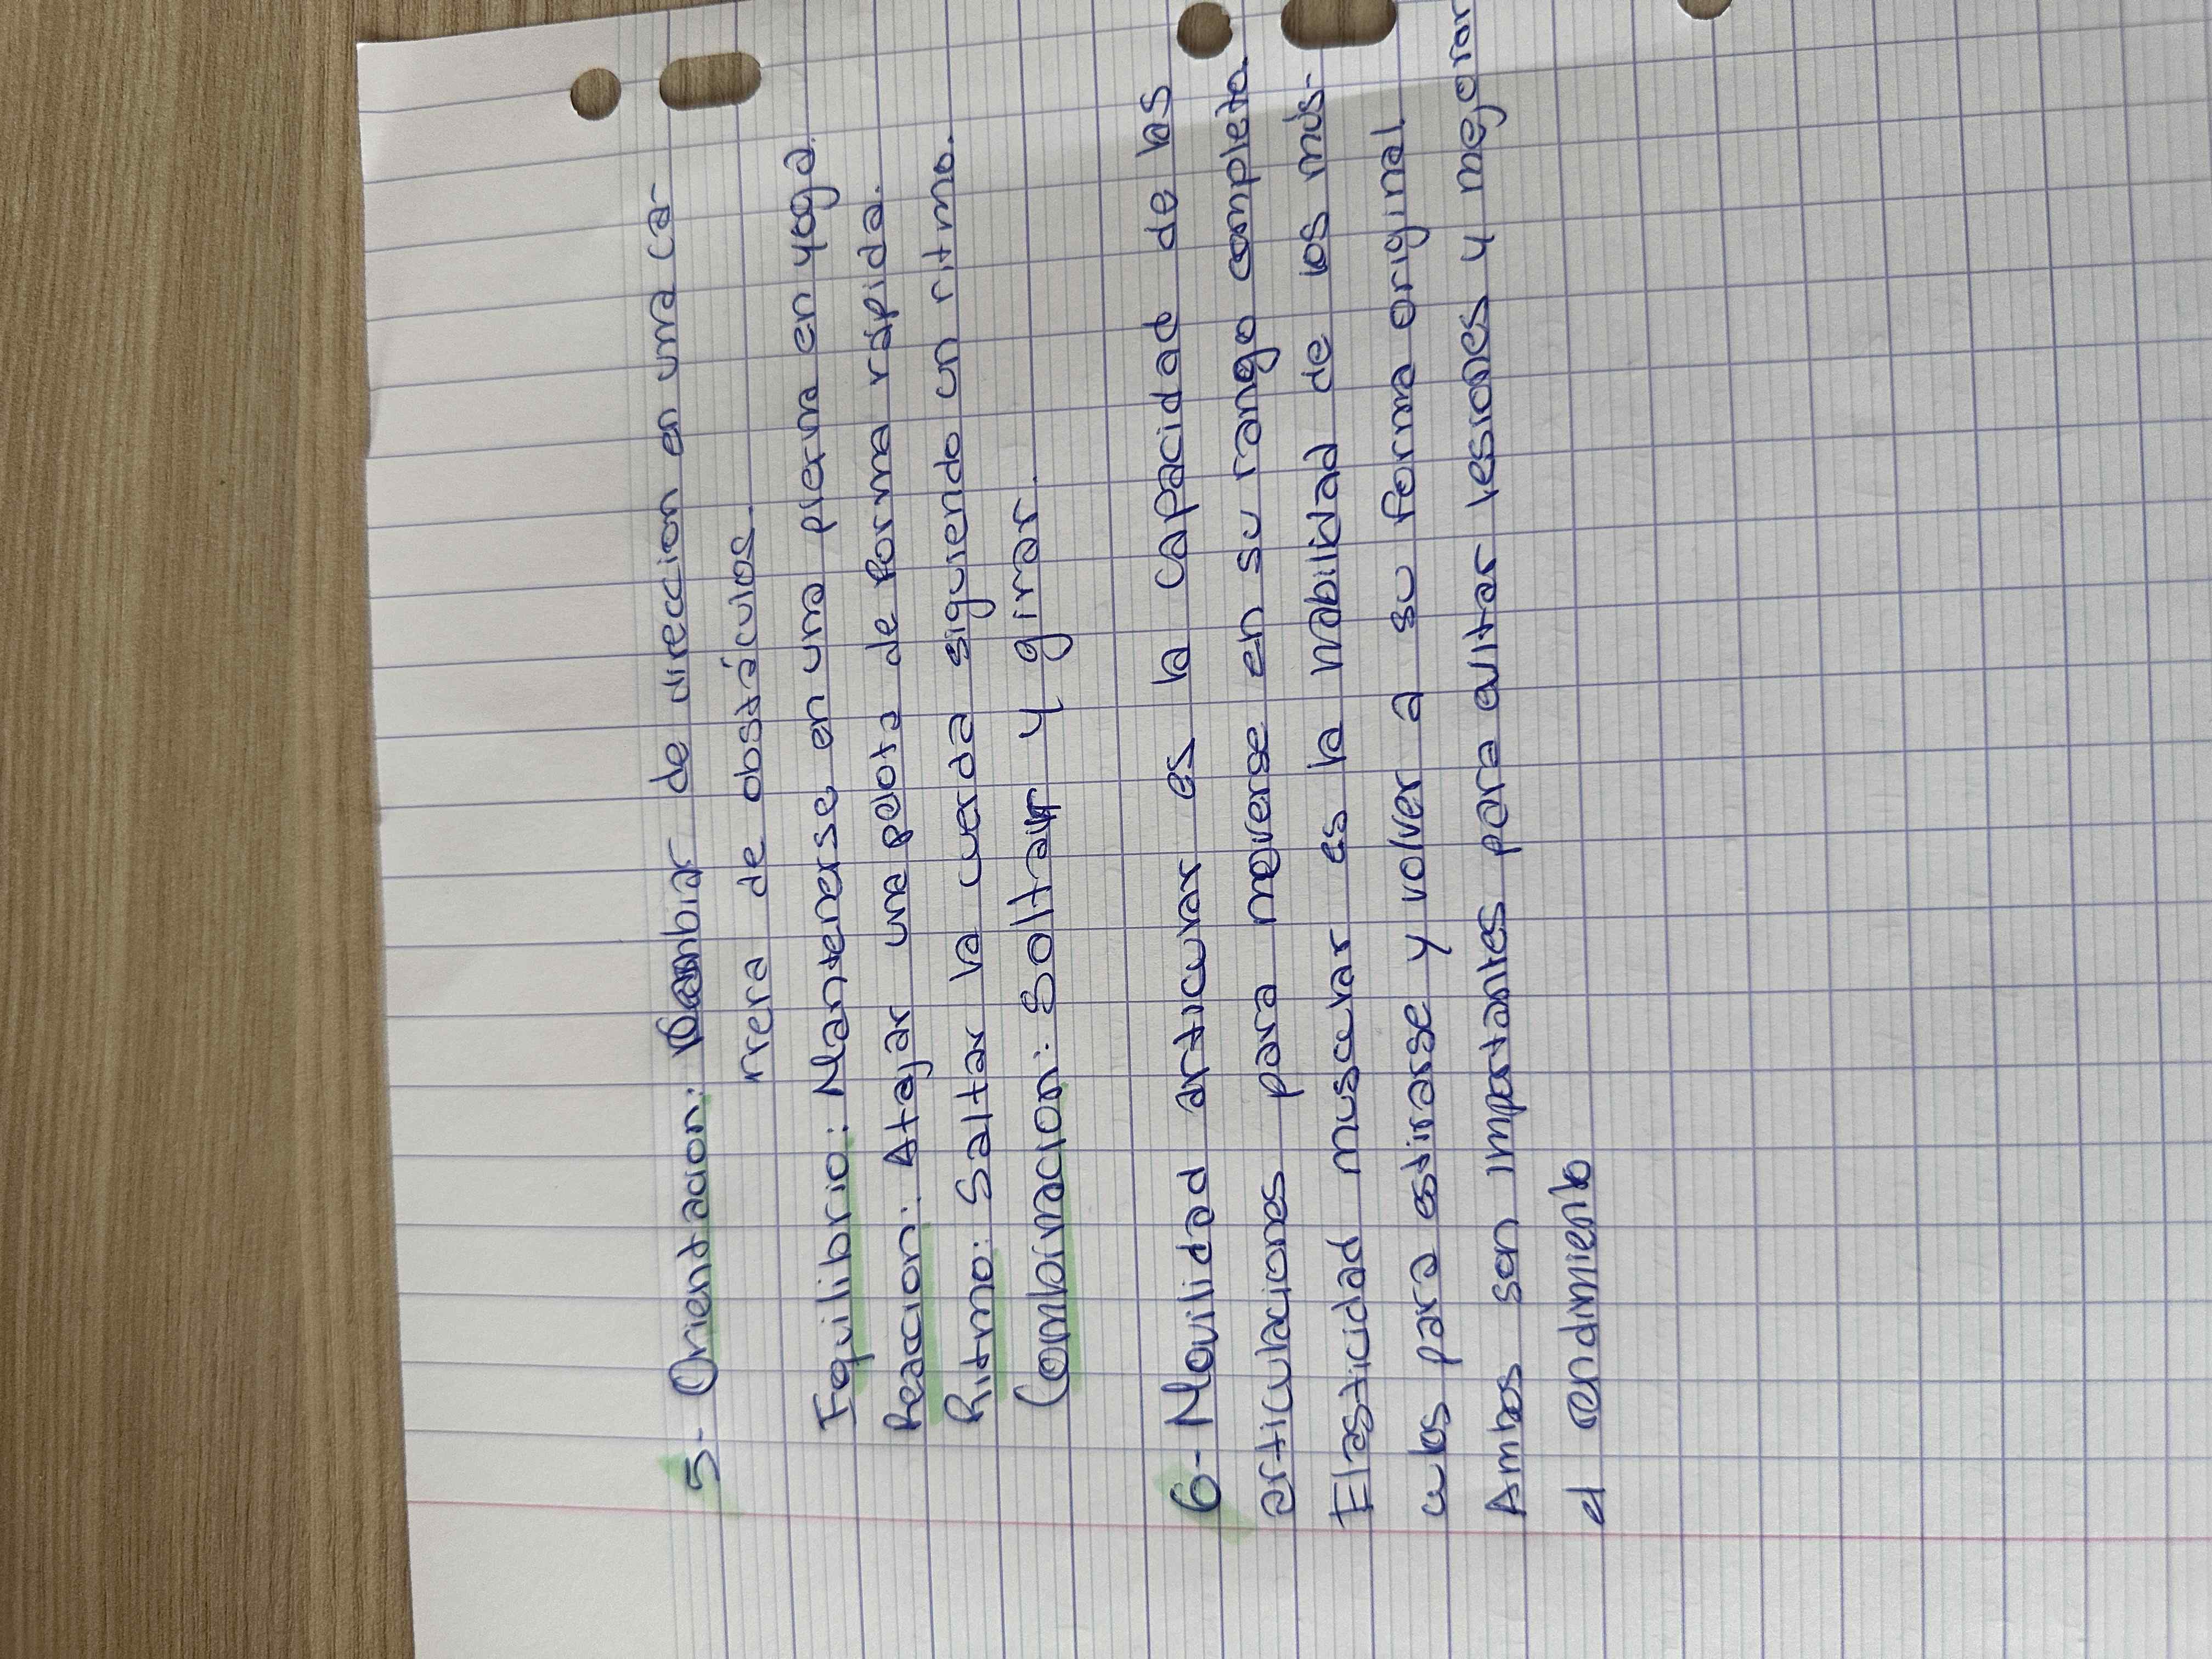 5- Orientacion: Cambiar de direccion en una ca-
rrera de obstáculos.
Equilibrio: Mantenerse en una pierna en yoga.
Reaccion: Atajar una pelota de forma rápida.
Ritmo: Saltar la cuerda siguiendo un ritmo.
Combinacion: Soltar y girar.
6- Movilidad articular es la capacidad de las
articulaciones para moverse en su rango completo.
Elasticidad muscular es la habilidad de los mús-
culos para estirarse y volver a su forma original.
Ambos son importantes para evitar lesiones y mejorar
el rendimiento